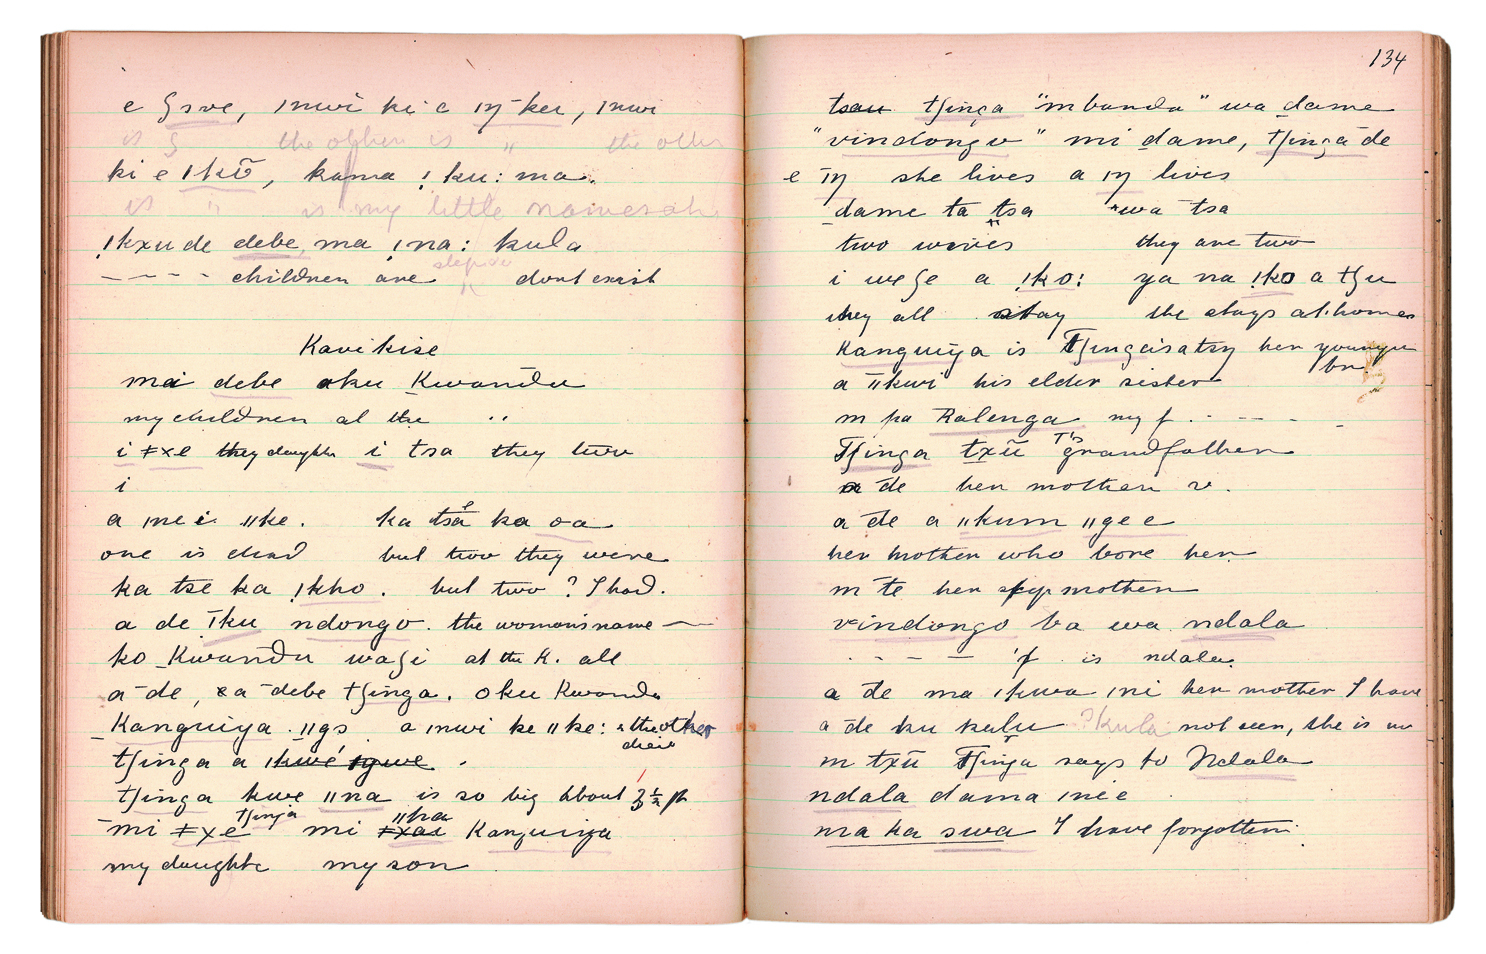 e ʃsve, ınwi ki e ıŋ kei, ınwi
is ʃ the other is " the other
ki e ıkō, kama ! ku: ma.
is " is my little
!kxu de debe, ma ǃna: kula
– – – – children are dont exist
Kavikise
ma debe oku Kwandu
my children at the "
i ǂxe they daughte i tsa they two
i
a ınei ǁke. ka tsa ka oa
one is dead but two they were
ka tse ka ǃkho. but two? I had.
a de ıku ndongo. the woman's name —
ko Kwandu waʃi at the K. all
a de, sa debe tʃinga. oku Kwandu
Kanguiya ǁgs a ınwi ke ǁke: the other
dead
tʃinga a
tʃinga kwe ǁna is so big about 3½ ft
tʃinga ǁna
mi ǂxe mi ǂxai Kanguiya
my daughte my son
134
tsau tʃinga "mbanda" wa dame
"vindongo" mi dame, tʃinga de
e ıŋ she lives a ıŋ lives
dame ta tsa wa tsa
two wives they are two
i weʃe a ǃko: ya na ǃko a tʃu
they all stay she stays at home
Kanguiya is her younger
br
a ǁkwi his elder sister
m pa Kalenga my f. – – –
Tʃinga txū T's grandfather
a de her mother v.
a de a ǁkum ǁgee
her mother who bore her
m te her mother
vindongo ba wa ndala
– – – – 'f is ndala.
a de ma ıkwa ıni her mother I have
a de ku kulu ?kula not seen, she is
m txū Tʃinga says to Ndala
ndala dama ınee
ma ka swa I have forgotten